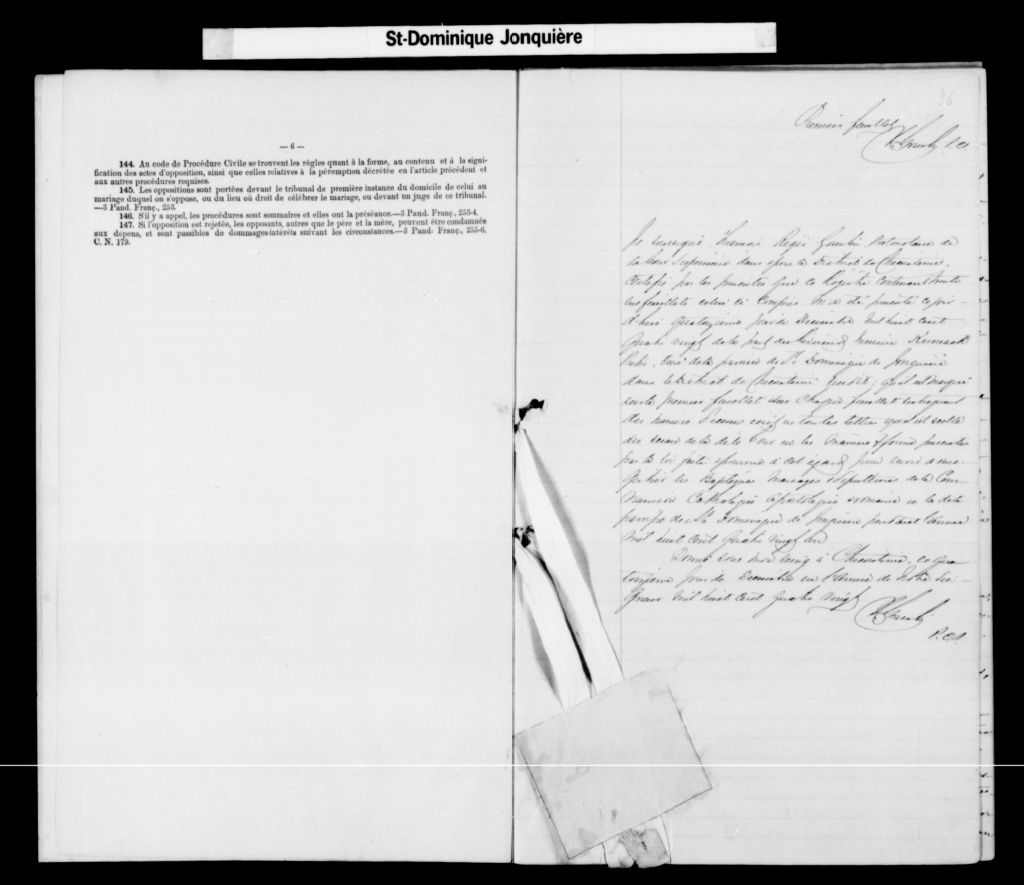 St-Dominique Jonquière
— 6 —
144. Au code de Procédure Civile se trouvent les règles quant à la forme, au contenu et à la signi-
fication des actes d'opposition, ainsi que celles relatives à la péremption décrétée en l'article précédent et
aux autres procédures requises.
145. Les oppositions sont portées devant le tribunal de première instance du domicile de celui au
mariage duquel on s'oppose, ou du lieu où droit de célébrer le mariage, ou devant un juge de ce tribunal.
—3 Pand. Franç., 253.
146. S'il y a appel, les procédures sont sommaires et elles ont la préséance.—3 Pand. Franç., 253-4.
147. Si l'opposition est rejetée, les opposants, autres que le père et la mère, peuvent être condamnés
aux dépens, et sont passibles de dommages-intérêts suivant les circonstances.—3 Pand. Franç., 255-6.
C. N. 179.
36
Premier feuillet
P.C.S.
Je soussigné, François Régis Protonotaire de
la Cour Supérieure dans et pour le District de Chicoutimi,
certifie par les présentes que ce Registre contenant trente
feuillets celui ci compris m'a été présenté ce jour-
d'hui quatorzième jour de Décembre mil huit cent
quatre vingt de la part du Révérend Monsieur
Ptre, Curé de la paroisse de St Dominique de Jonquière
dans le District de Chicoutimi susdit; qu'il est marqué
sur le premier feuillet et sur chaque feuillet subséquent
du numéro d'icelui écrit en toutes lettres et qu'il est scellé
du sceau de la dite Cour en la manière & forme prescrites
par la loi faite et pourvue à cet égard pour servir à enre-
gistrer les Baptêmes Mariages et Sépultures de la Com-
munion Catholique apostolique et romaine en la dite
paroisse de St Dominique de Jonquière pendant l'année
mil huit cent quatre vingt un
Donné sous mon seing à Chicoutimi, ce qua-
torzième jour de Décembre en l'année de Notre Sei-
gneur mil huit cent quatre vingt
P.C.S.